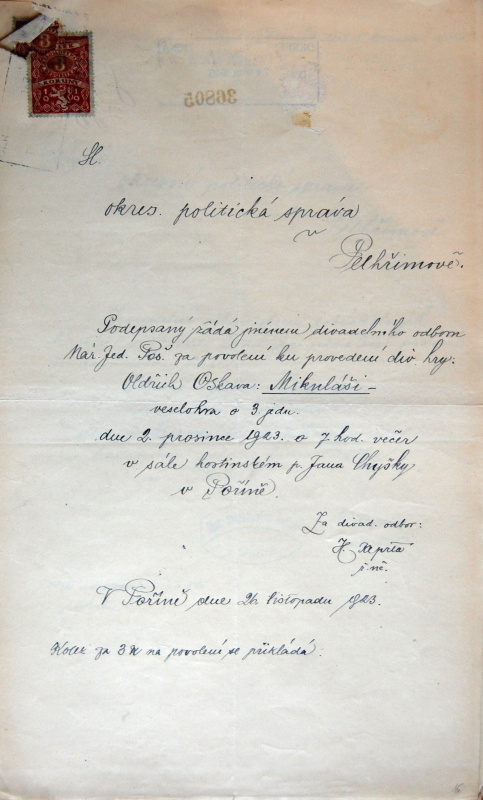 3
KORUNY
36805
Sl.
okres. politická správa
v
Pelhřimově.
Podepsaný žádá jménem divadelního odboru
Nár. Jed. Poš. za povolení ku provedení div. hry:
Oldřich Oskava: Mikuláši –
veselohra o 3 jedn.
dne 2. prosince 1923. o 7 hod. večer
v sále hostinském p. Jana Chyšky
v Poříně.
Za divad. odbor:
V Poříně dne 26 listopadu 1923.
Kolek za 3 K na povolení se přikládá.